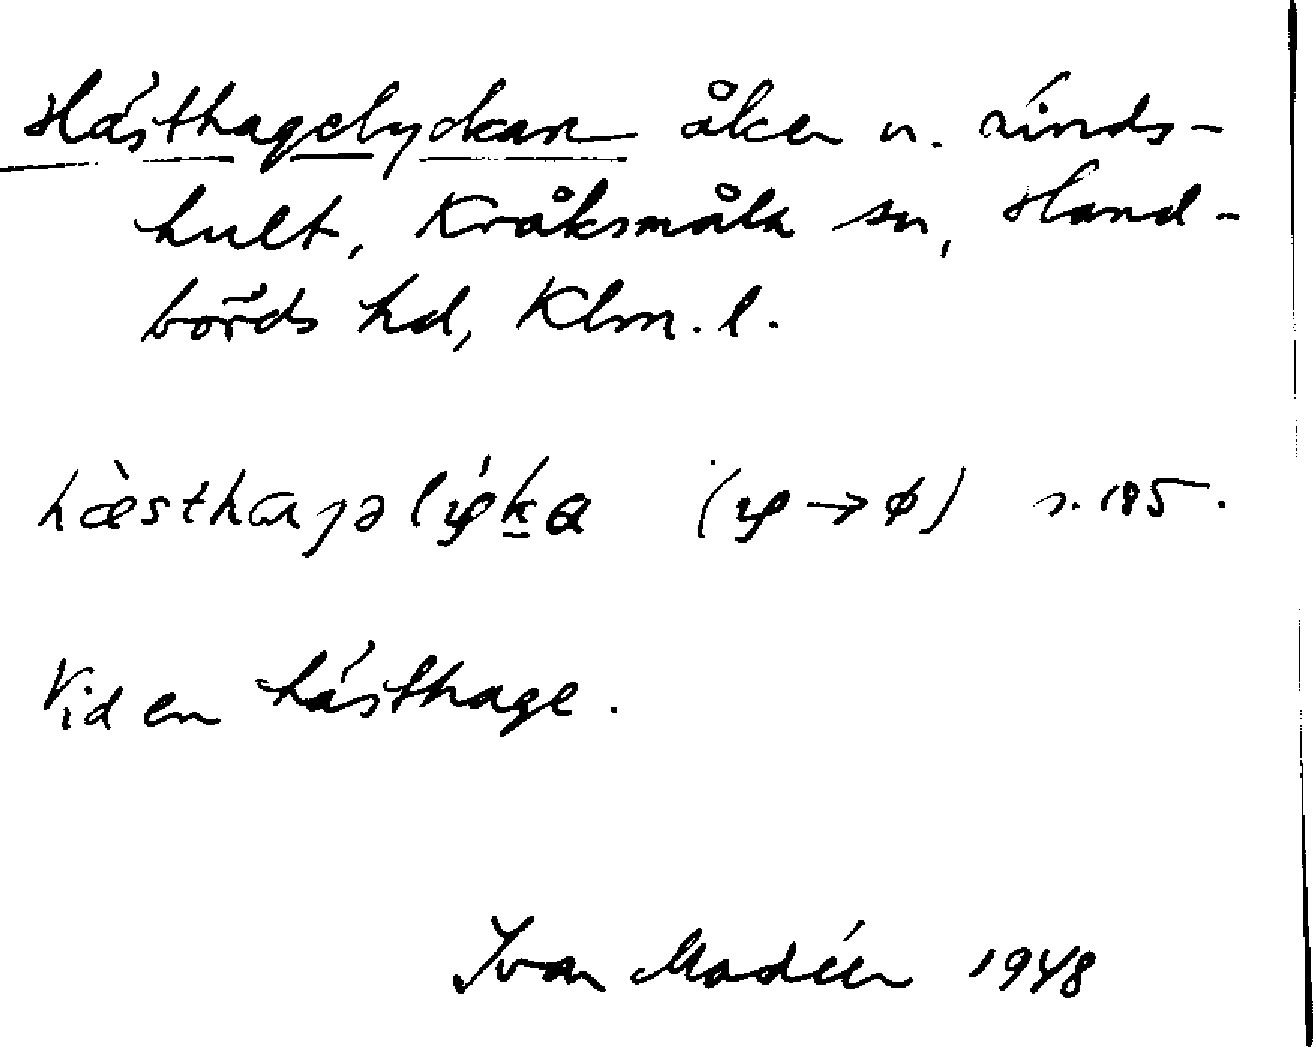 Hästhagelyckan åker n. Rinds-
hult, Kråksmåla sn, Hand-
börds hd, Klm. l.
s. 185.
Vid en hästhage.
Ivar Modéer 1948